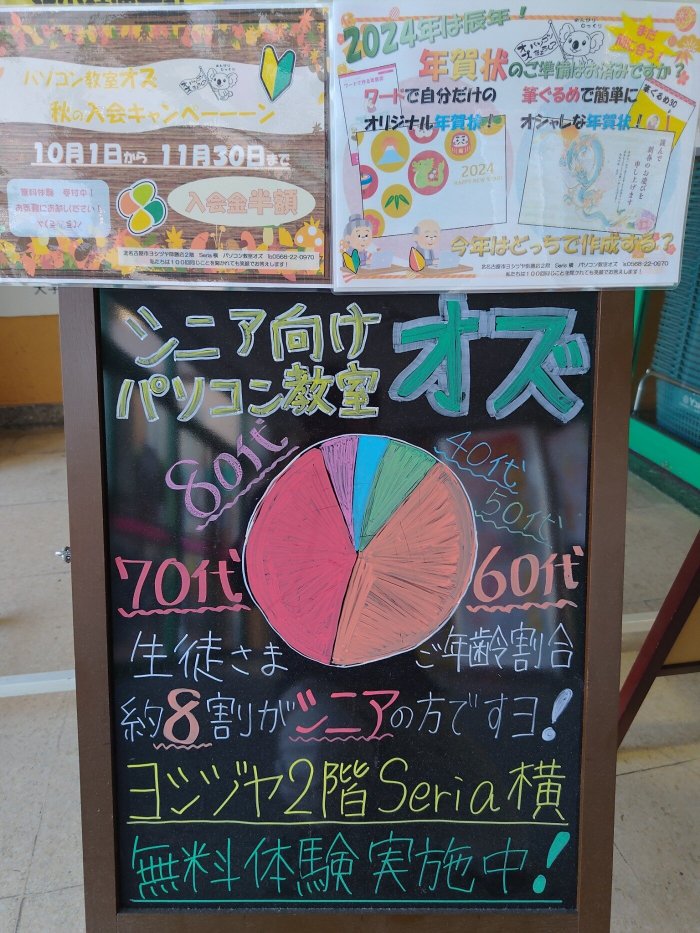 パソコン教室オズ
秋の入会キャンペーーーン
10月1日から 11月30日まで
無料体験 受付中！
お気軽にお試しください！
入会金半額
北名古屋市ヨシヅヤ師勝店2階 Seria 横 パソコン教室オズ ℡0568-22-0970
私たちは100回同じことを聞かれても笑顔でお答えします！
2024年は辰年！
まだ
間に合う！
年賀状のご準備はお済みですか？
ワードで自分だけの
オリジナル年賀状！
筆ぐるめで簡単に
オシャレな年賀状！
筆ぐるめ30
2024
HAPPY NEW YEAR
謹んで
新春のお慶びを
申し上げます
今年はどっちで作成する？
北名古屋市ヨシヅヤ師勝店2階 Seria 横 パソコン教室オズ ℡0568-22-0970
私たちは100回同じことを聞かれても笑顔でお答えします！
シニア向け
パソコン教室 オズ
80代
40代
50代
70代
60代
生徒さま ご年齢割合
約8割がシニアの方ですヨ！
ヨシヅヤ2階Seria横
無料体験実施中！